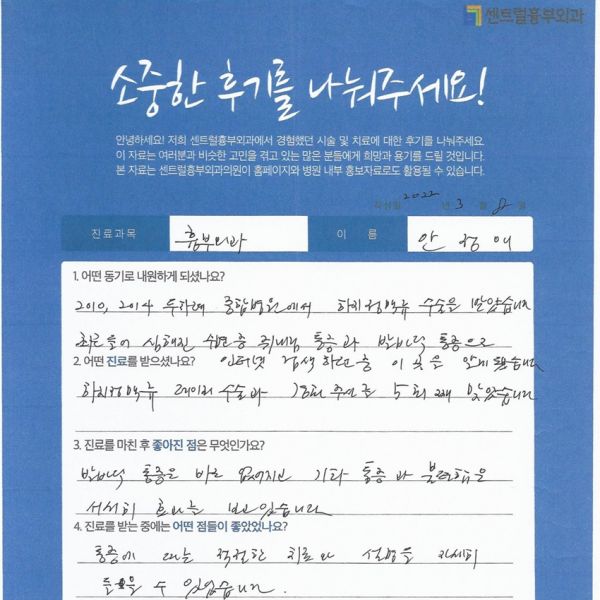 센트럴흉부외과
소중한 후기를 나눠주세요!
안녕하세요! 저희 센트럴흉부외과에서 경험했던 시술 및 치료에 대한 후기를 나눠주세요
이 자료는 여러분과 비슷한 고민을 겪고 있는 많은 분들에게 희망과 용기를 드릴 것입니다.
본 자료는 센트럴흉부외과의원이 홈페이지와 병원 내부 홍보자료로도 활용될 수 있습니다.
작성일 2022 년 3 월 8 일
진료과목 흉부외과 이 름 안 정 애
1. 어떤 동기로 내원하게 되셨나요?
2010, 2014 두차례 종합병원에서 하지정맥류 수술을 받았습니다
최근들어 심해진 수면중 쥐내림 통증과 발바닥 통증으로
2. 어떤 진료를 받으셨나요? 인터넷 검색 하던 중 이 곳을 알게 됐습니다
하지정맥류 레이저 수술과 주사를 5회째 맞았습니다
3. 진료를 마친 후 좋아진 점은 무엇인가요?
발바닥 통증은 바로 없어지고 기타 통증과 불편함은
서서히 효과를 보고 있습니다
4. 진료를 받는 중에는 어떤 점들이 좋았었나요?
통증에 대한 적절한 치료와 설명을 자세히
들을 수 있었습니다.